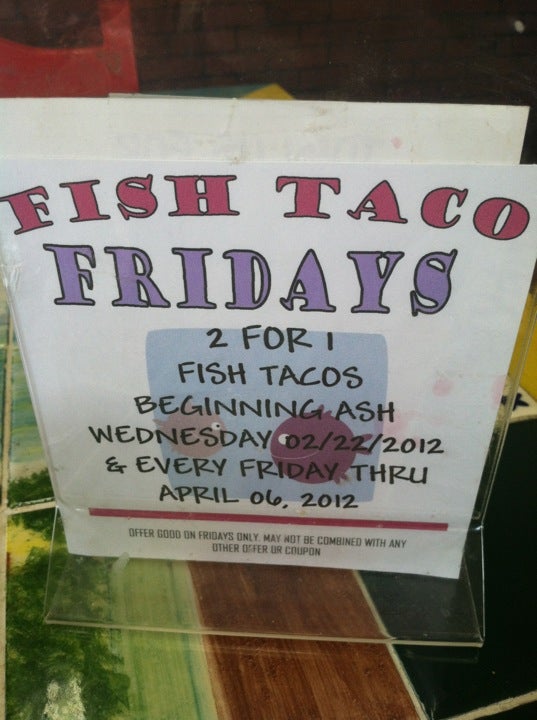 FISH TACO
FRIDAYS
2 FOR 1
FISH TACOS
BEGINNING ASH
WEDNESDAY 02/22/2012
& EVERY FRIDAY THRU
APRIL 06, 2012
OFFER GOOD ON FRIDAYS ONLY. MAY NOT BE COMBINED WITH ANY
OTHER OFFER OR COUPON